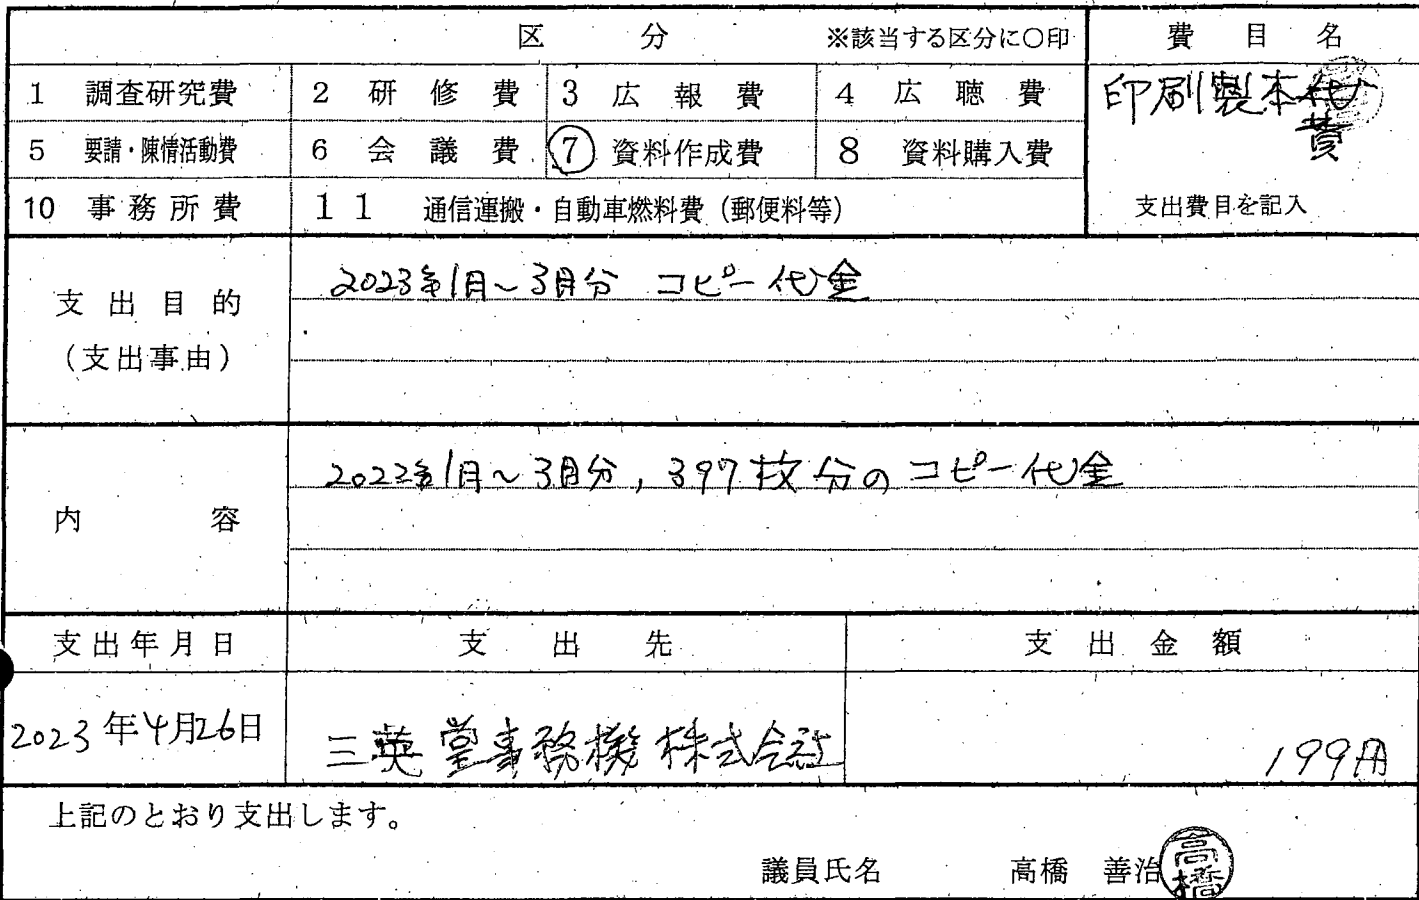 区 分 ※該当する区分に○印 費目名
1 調査研究費 2 研修費 3 広報費 4 広聴費 印刷製本代
費
5 要請・陳情活動費 6 会議費 7 資料作成費 8 資料購入費
10 事務所費 11 通信運搬・自動車燃料費(郵便料等) 支出費目を記入
支出目的
(支出事由)
2023年1月～3月分 コピー代金
内容
2023年1月～3月分,397枚分のコピー代金
支出年月日 支出先 支出金額
2023年4月26日 三英堂事務機株式会社 199円
上記のとおり支出します。
議員氏名 高橋 善治 高橋